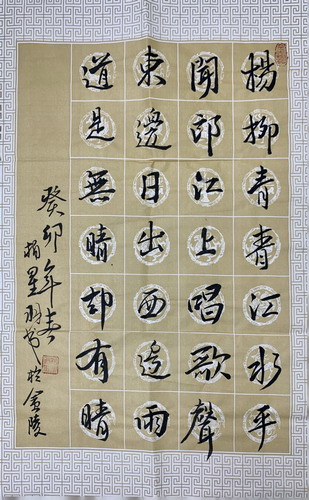 楊柳青青江水平
聞郎江上唱歌聲
東邊日出西边雨
道是無晴却有晴
癸卯年春
於金陵